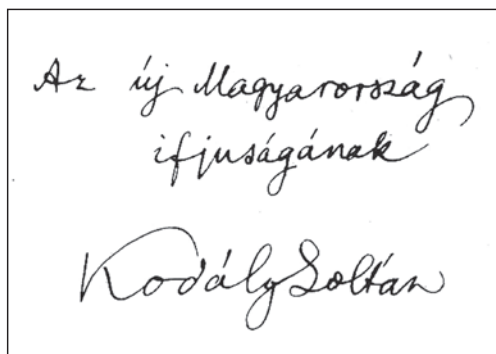 Az új Magyarország
ifjuságának
Kodály Zoltán